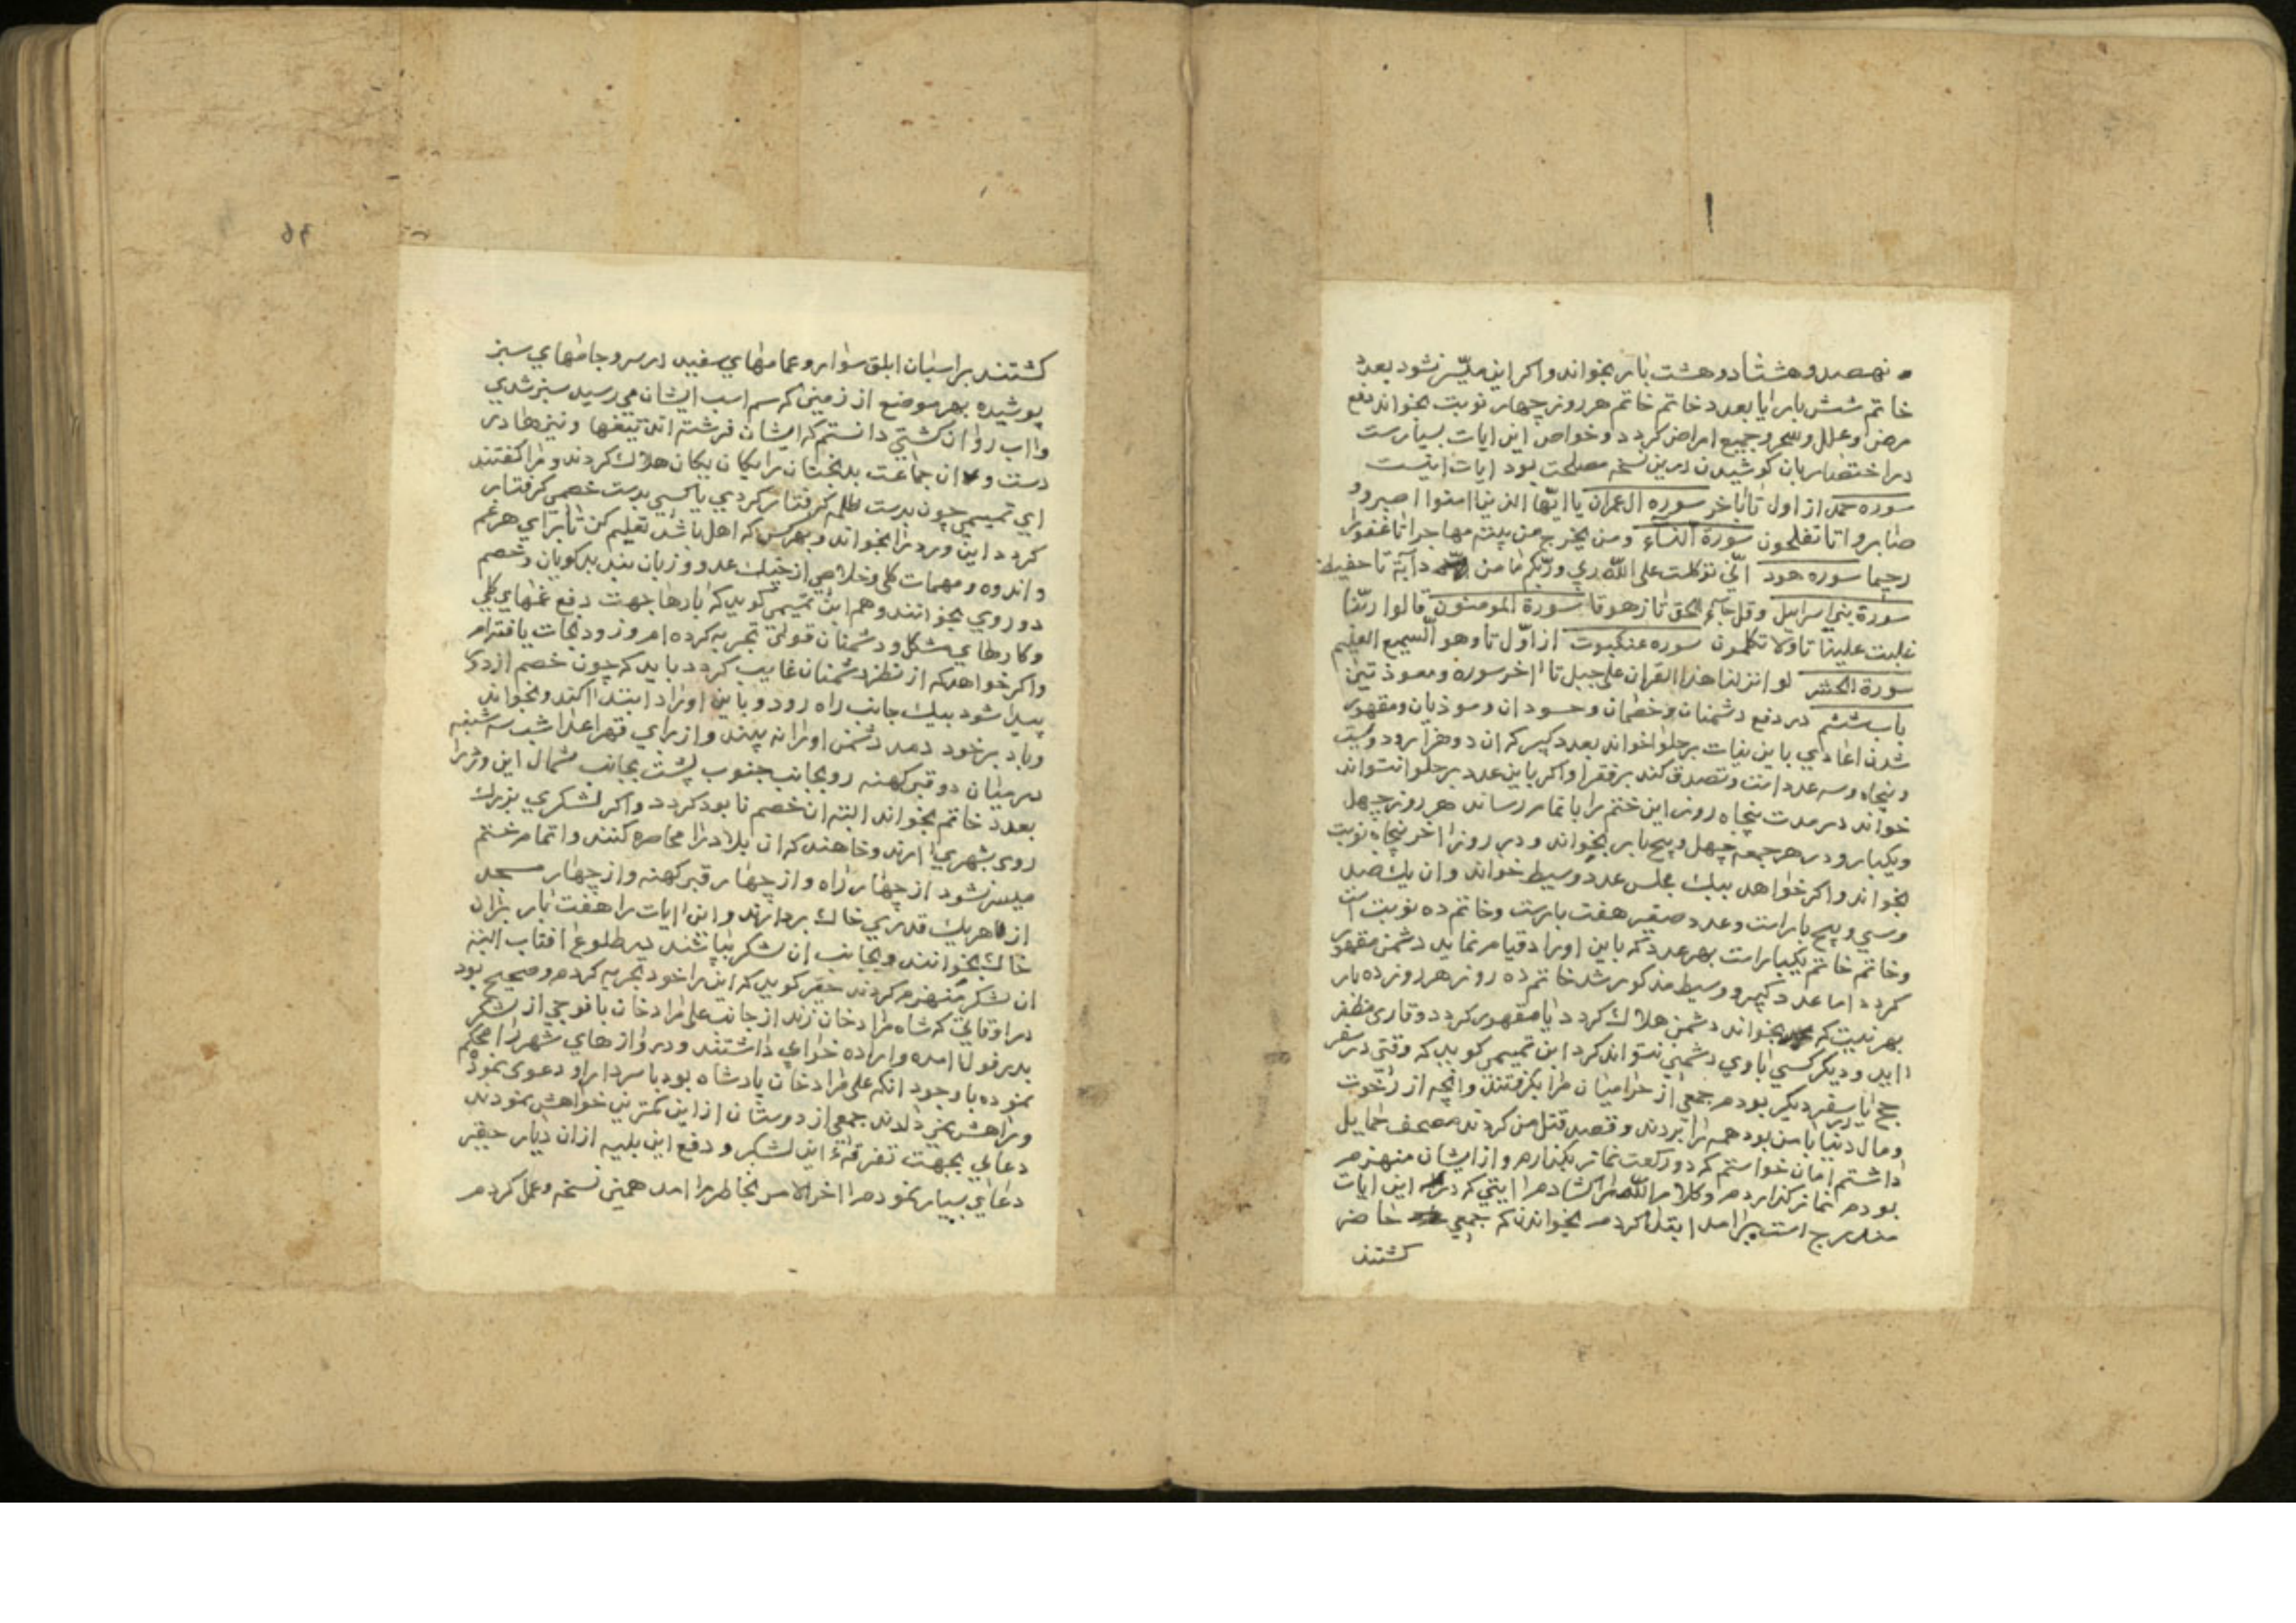 نهصد و هشتاد و هشت بار بخواند واکر این میسّر نشود بعدد
خاتم شش بار یا بعدد خاتم خاتم هر روز چهار نوبت بخواند دفع
مرض و علل و سحر و جمیع امراض کردد و خواص این ایات بسیارست
در اختصار بان کوشیدن درین نسخه مصلحت بود ایات اینست
سوره حمد از اول تا باخر سوره ال عمران یا ایّها الذین امنوا اصبروا و
صابروا تا تفلحون سورة النساء ومن یخرج من بیته مهاجرا تا غفورا
رحیما سوره هود انّی توکلت علی اللّه ربي وربّکم ما من دآبة تا حفیظ
سورة بنی اسراییل وقل جآء الحق تا زهوقا سورة المومنون قالوا ربّنا
غلبت علینا تا ولا تکلمون سوره عنکبوت از اوّل تا وهو السمیع العلیم
سورة الحشر لو انزلنا هذا القران علی جبل تا اخر سوره ومعوذتین
باب ششم در دفع دشمنان و خصمان و حسودان و موذیان ومقهور
شدن اعادي باین نیات برحلوا خواند بعدد کبیر که ان دو هزار و دویست
و پنجاه و سه عدد است و تصدق کند بر فقرا واکر باین عدد برحلوا نتواند
خواند در مدت پنجاه روز این ختم را باتمام رساند هر روز چهل
ویکبار و در هر جمعه چهل و پنج بار بخواند و در روز اخر پنجاه نوبت
بخواند واکر خواهد بیك مجلس عدد وسیط خواند وان یك صد
وسي و پنج بار است وعدد صغیر هفت بارست وخاتم ده نوبت است
وخاتم خاتم یکبار است بهر عدد که باین اوراد قیام نماید دشمن مقهور
کردد اما عدد کبیر و وسیط مذکور شد خاتم ده روز هر روز ده بار
بهر نیت که بخواند دشمن هلاك کردد یا مقهور کردد وقاری مظفر
اید ودیکر کسي باوي دشمني نتواند کرد ابن تمیمي کوید که وقتي در سفر
حج یا در سفر دیکر بودم جمعي از حرامیان مرا بکرفتند وانچه از رخوت
ومال دنیا با من بود همه را بردند و قصد قتل من کردند مصحف حمایل
داشتم امان خواستم که دو رکعت نماز بکذارم و از ایشان منهزم
بودم نماز کذاردم و کلام اللّه را کشادم ایتي که در این ایات
مندرج است برامد ابتدا کردم بخواندن که جمعي حاضر
کشتند
٩٥
کشتند بر اسبان ابلق سوار و عمامهاي سفید در سر و جامهاي سبز
پوشیده بهر موضع از زمیني که سم اسب ایشان مي رسید سبز شدي
واب روان کشتي دانستم که ایشان فرشته اند تیغها و نیزها در
دست و ان جماعت بدبختان را یکان یکان هلاك کردند و مرا کفتند
اي تمیمي چون بدست ظلمه کرفتار کردي یا کسي بدست خصمي کرفتار
کردد این ورد را بخواند و بهر کس که اهل باشد تعلیم کن تا براي هر غم
واندوه و مهمات کلي و خلاصي از چنك عدو و زبان بند بدکویان و خصم
دوروي بخوانند وهم ابن تمیمي کوید که بارها جهت دفع غمهاي کلي
وکارهاي مشکل و دشمنان قوي تجربه کرده ام و زود نجات یافته ام
واکر خواهد که از نظر دشمنان غایب کردد باید که چون خصم از دور
پیدا شود بیك جانب راه رود و باین اوراد ابتدا کند و بخواند
وباد بر خود دمد دشمن او را نه بیند و از براي قهر اعدا شب سه شنبه
در میان دو قبر کهنه رو بجانب جنوب پشت بجانب شمال این ورد را
بعدد خاتم بخواند البته ان خصم نابود کردد واکر لشکري بزرك
روي بشهري ارند وخاهند که ان بلاد را محاصره کنند و اتمام ختم
میسر نشود از چهار راه و از چهار قبر کهنه و از چهار مسجد
از هر یك قدري خاك بردارند و این ایات را هفت بار بران
خاك بخوانند و بجانب ان لشکر بپاشند در طلوع افتاب البته
ان لشکر منهزم کردند حقیر کوید که این را خود تجربه کردم و صحیح بود
در اوقاتي که شاه مراد خان زند از جانب علي مراد خان با فوجي از لشکر
بدزفول امده و اراده خرابي داشتند و دروازهاي شهر را محکم
نموده با وجود انکه علي مراد خان پادشاه بود با سردار او دعوي نمود
وراهش نمي دادند جمعي از دوستان از این کمترین خواهش نمودند
دعائي بجهت تفرقهٔ این لشکر و دفع این بلیه از ان دیار حقیر
دعاي بسیار نمودم اخر الامر بخاطرم امد همین نسخه و عمل کردم